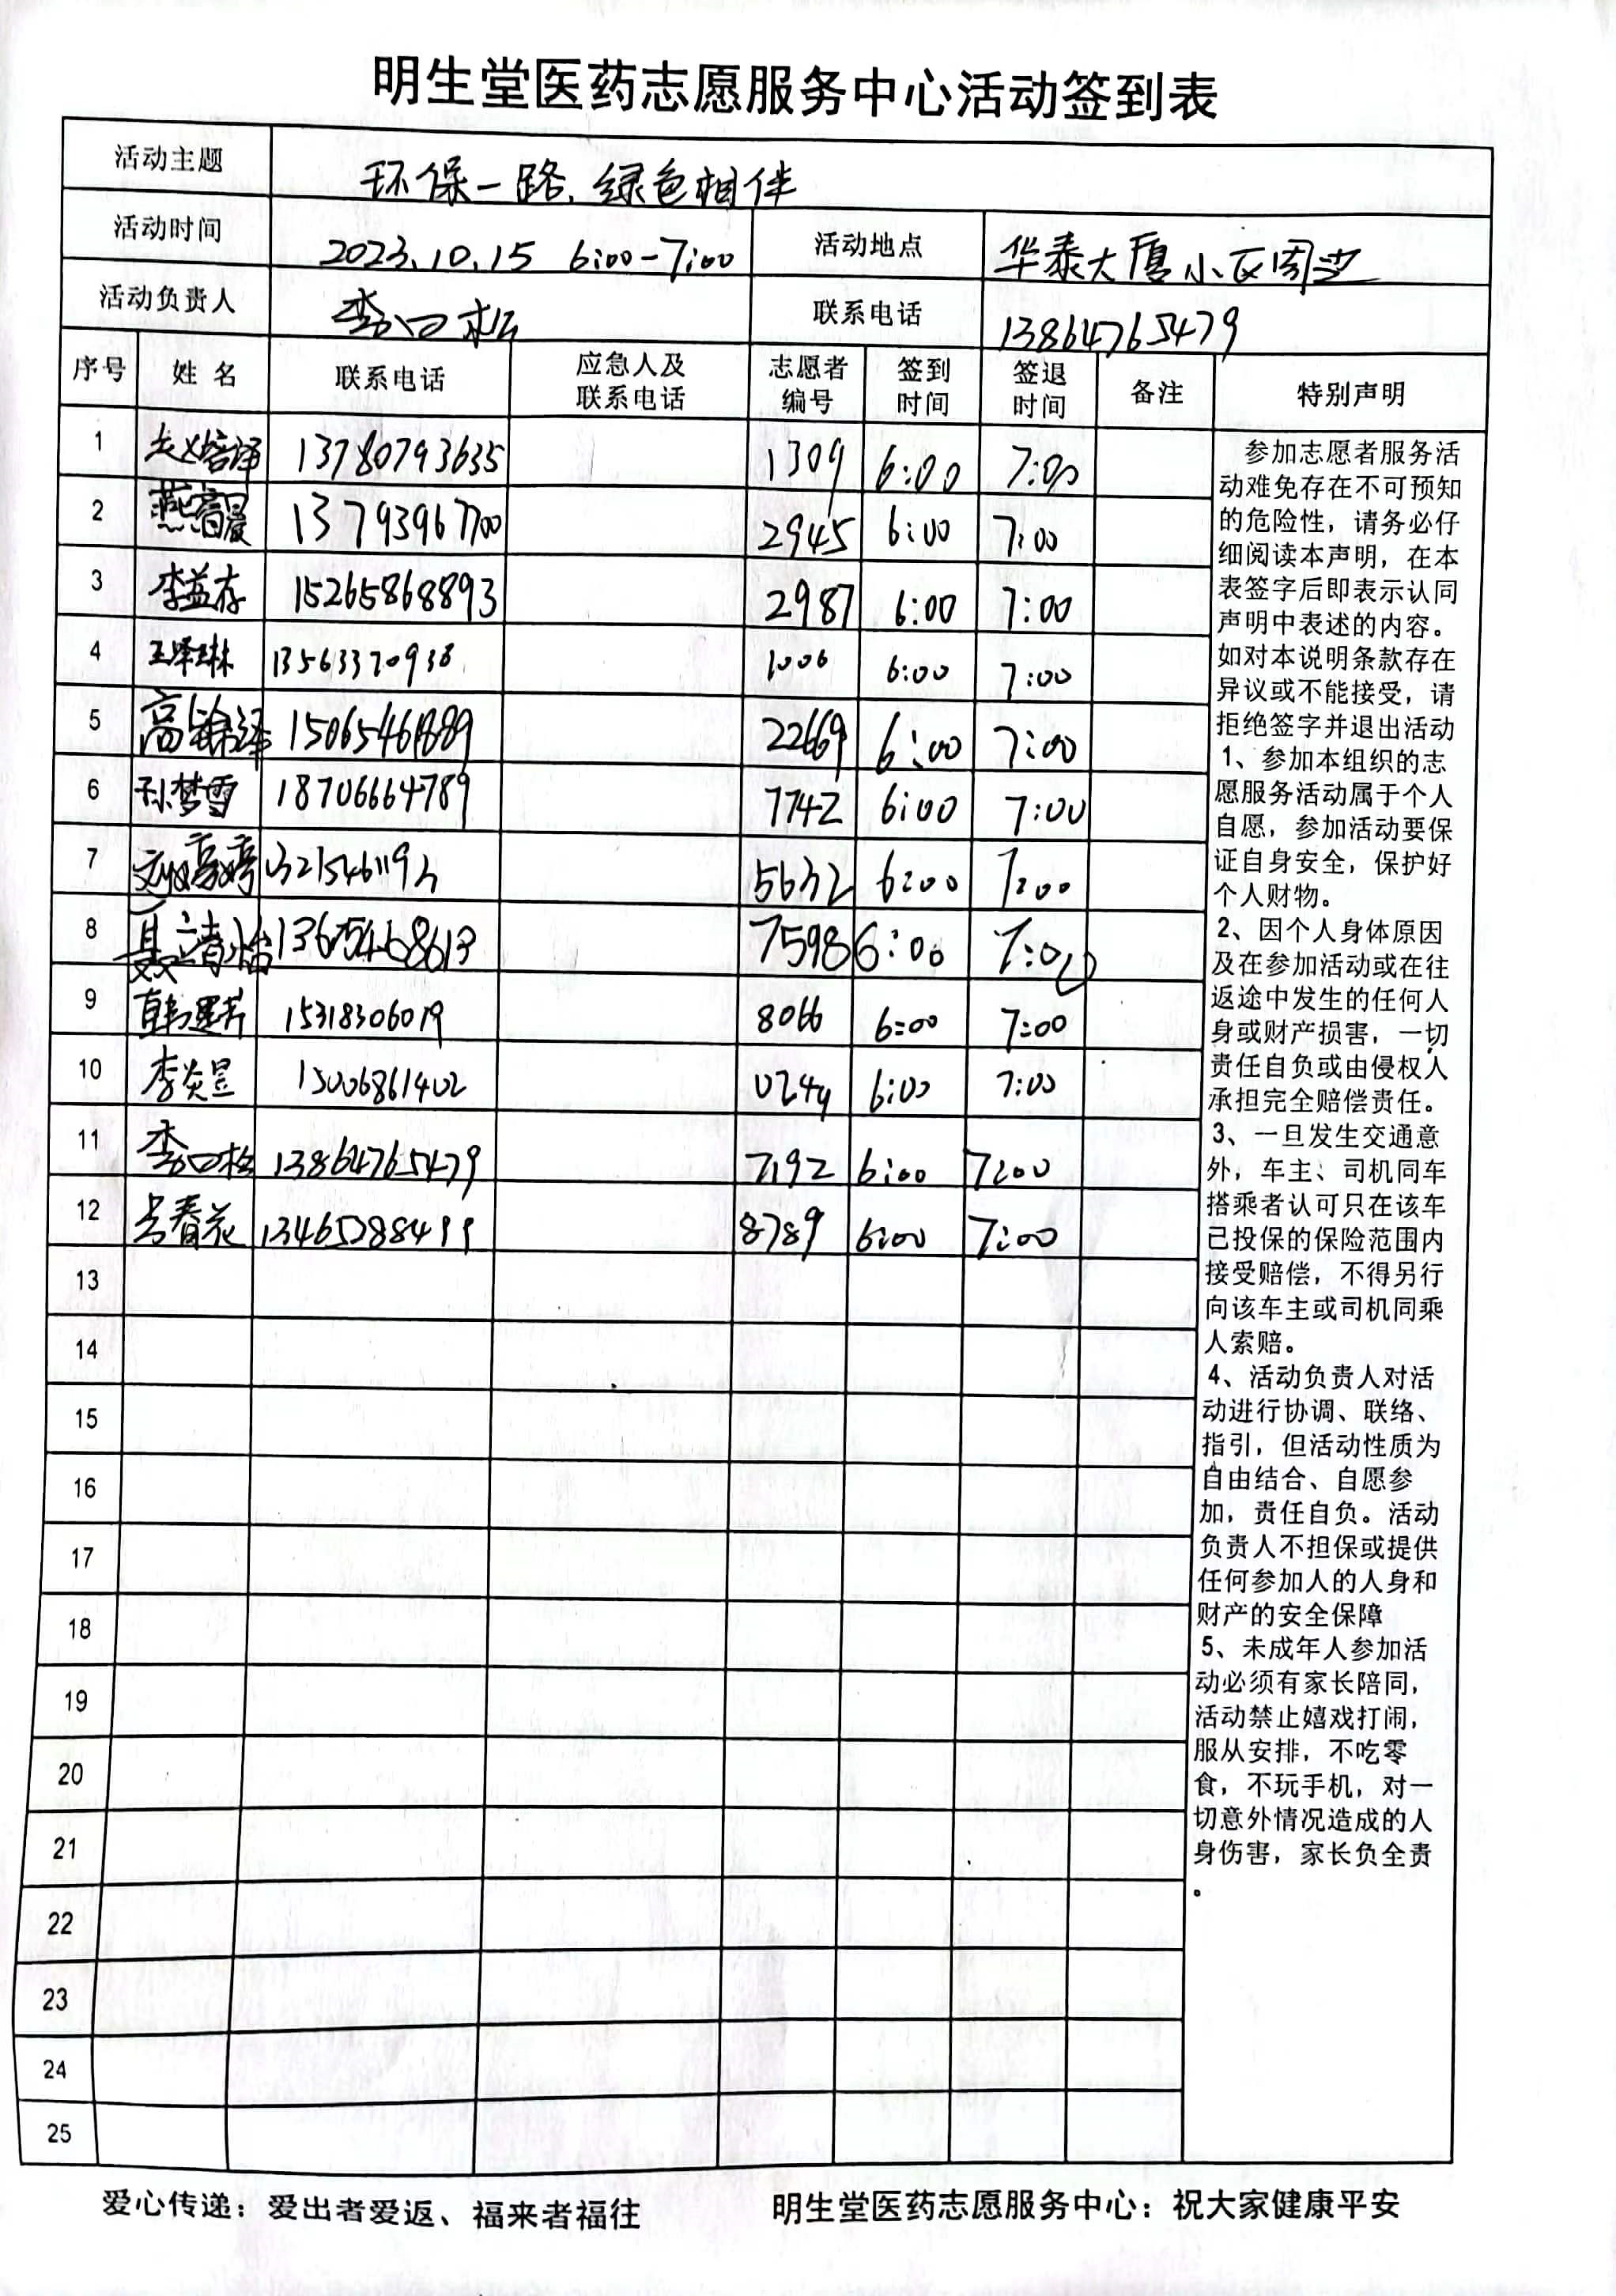 明生堂医药志愿服务中心活动签到表
活动主题 环保一路，绿色相伴
活动时间 2023.10.15 6:00-7:00 活动地点 华泰大厦小区周边
活动负责人 李 联系电话 13864765479
序号 姓名 联系电话 应急人及联系电话 志愿者编号 签到时间 签退时间 备注 特别声明
1 13780793635 1309 6:00 7:00
2 13793967700 2945 6:00 7:00
3 李益存 15265868893 2987 6:00 7:00
4 王泽琳 13563370938 1006 6:00 7:00
5 22669 6:00 7:00
6 孙梦雪 18706664789 7742 6:00 7:00
7 5632 6:00 7:00
8 聂靖怡 13654668613 7598 6:00 7:00
9 15318306019 8066 6:00 7:00
10 李炎昱 15006861402 0244 6:00 7:00
11 李 13864765479 7192 6:00 7:00
12 吕春花 8789 6:00 7:00
13
14
15
16
17
18
19
20
21
22
23
24
25
参加志愿者服务活
动难免存在不可预知
的危险性，请务必仔
细阅读本声明，在本
表签字后即表示认同
声明中表述的内容。
如对本说明条款存在
异议或不能接受，请
拒绝签字并退出活动
1、参加本组织的志
愿服务活动属于个人
自愿，参加活动要保
证自身安全，保护好
个人财物。
2、因个人身体原因
及在参加活动或在往
返途中发生的任何人
身或财产损害，一切
责任自负或由侵权人
承担完全赔偿责任。
3、一旦发生交通意
外，车主、司机同车
搭乘者认可只在该车
已投保的保险范围内
接受赔偿，不得另行
向该车主或司机同乘
人索赔。
4、活动负责人对活
动进行协调、联络、
指引，但活动性质为
自由结合、自愿参
加，责任自负。活动
负责人不担保或提供
任何参加人的人身和
财产的安全保障
5、未成年人参加活
动必须有家长陪同，
活动禁止嬉戏打闹，
服从安排，不吃零
食，不玩手机，对一
切意外情况造成的人
身伤害，家长负全责
。
爱心传递：爱出者爱返、福来者福往 明生堂医药志愿服务中心：祝大家健康平安